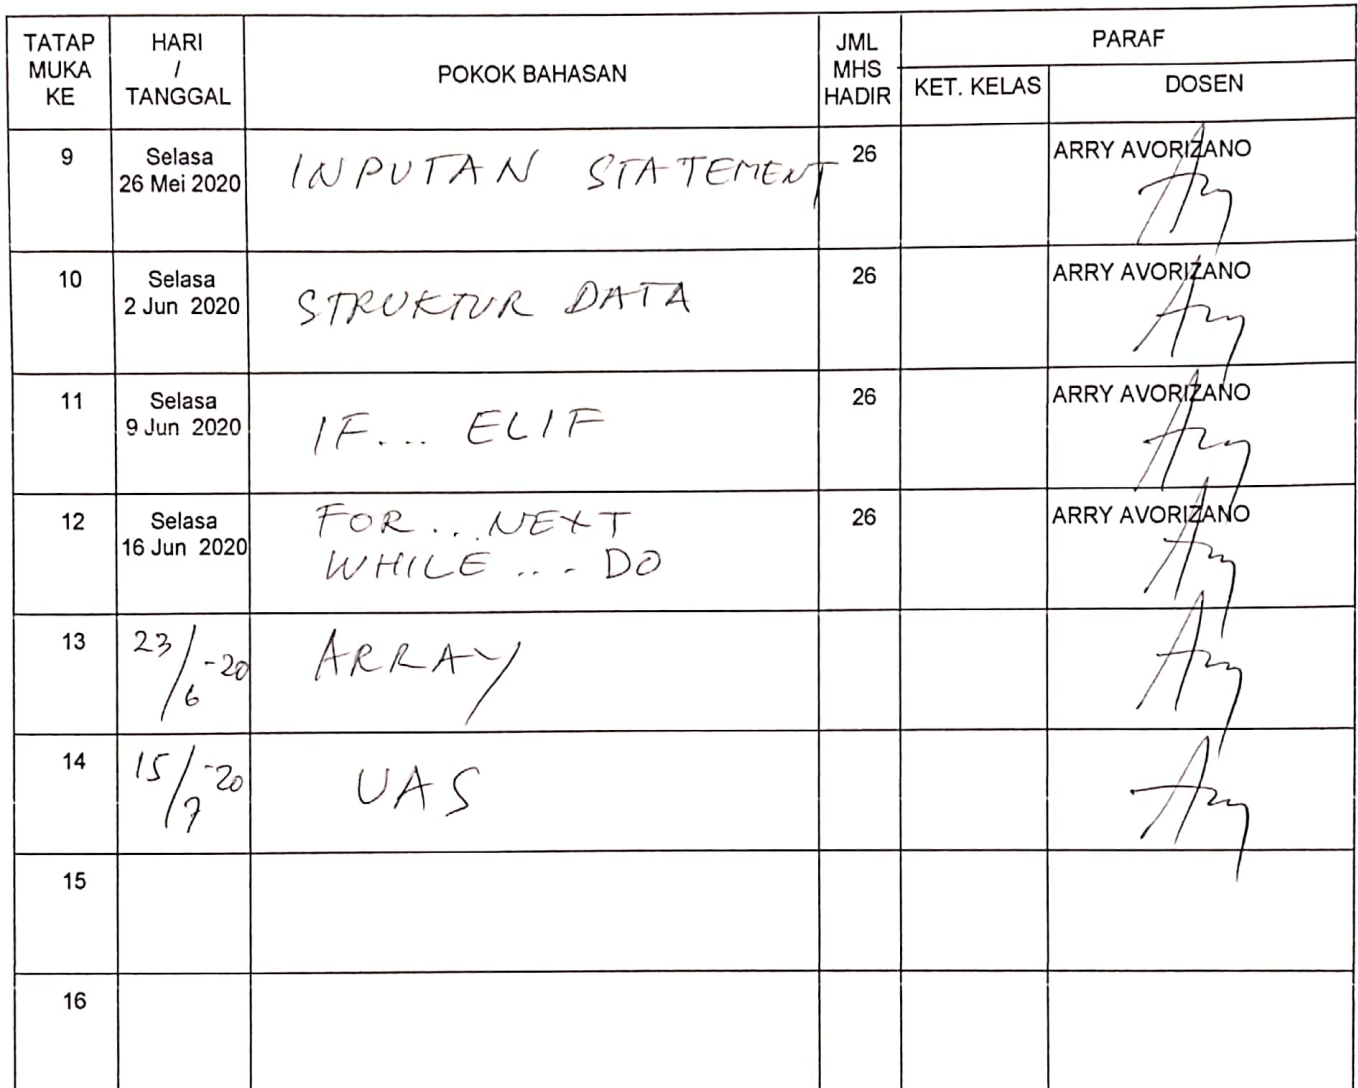 TATAP MUKA KE HARI / TANGGAL POKOK BAHASAN JML MHS HADIR PARAF
KET. KELAS DOSEN
9 Selasa 26 Mei 2020 INPUTAN STATEMENT 26 ARRY AVORIZANO
10 Selasa 2 Jun 2020 STRUKTUR DATA 26 ARRY AVORIZANO
11 Selasa 9 Jun 2020 IF... ELIF 26 ARRY AVORIZANO
12 Selasa 16 Jun 2020 FOR... NEXT WHILE ... DO 26 ARRY AVORIZANO
13 23/6-20 ARRAY
14 15/7-20 UAS
15
16